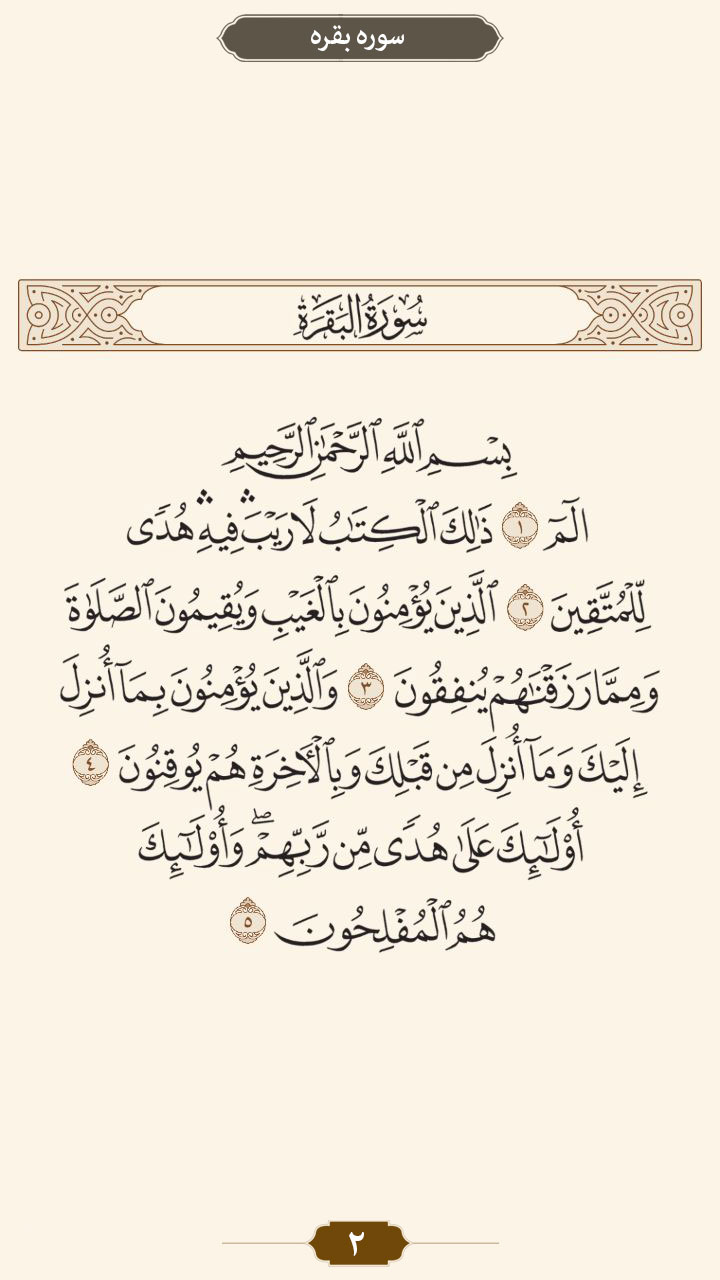 سوره بقره
سُورَةُ البَقَرَةِ
بِسْمِ ٱللَّهِ ٱلرَّحْمَٰنِ ٱلرَّحِيمِ
الٓمٓ ١ ذَٰلِكَ ٱلْكِتَٰبُ لَا رَيْبَۛ فِيهِۛ هُدًى
لِّلْمُتَّقِينَ ٢ ٱلَّذِينَ يُؤْمِنُونَ بِٱلْغَيْبِ وَيُقِيمُونَ ٱلصَّلَوٰةَ
وَمِمَّا رَزَقْنَٰهُمْ يُنفِقُونَ ٣ وَٱلَّذِينَ يُؤْمِنُونَ بِمَآ أُنزِلَ
إِلَيْكَ وَمَآ أُنزِلَ مِن قَبْلِكَ وَبِٱلْأٓخِرَةِ هُمْ يُوقِنُونَ ٤
أُو۟لَٰٓئِكَ عَلَىٰ هُدًى مِّن رَّبِّهِمْۖ وَأُو۟لَٰٓئِكَ
هُمُ ٱلْمُفْلِحُونَ ٥
٢